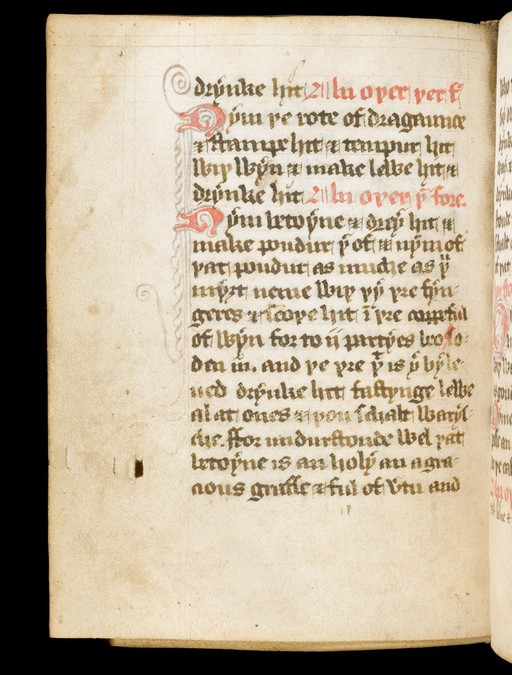 drynke hit An oþer þer f
Nym þe rote of dragaunce
& stampe hit & tempur hit
wiþ wyn & make lawe hit &
drynke hit An oþer þ fore.
Nym betoyne & drey hit &
make poudur þ of & nym of
þat poudur as muche as þ
myzt neme wiþ þy þre fyn
geres & scoþe hit ī þre coppeful
of wyn for to ii partyes be so
den in. and þe þre þ is þ byle
ued drynke hit fastynge lewe
al at ones & þou schalt warys
che. ffor undurstonde wel þat
betoyne is an holy an a gra
cious grasse & ful of vtu and